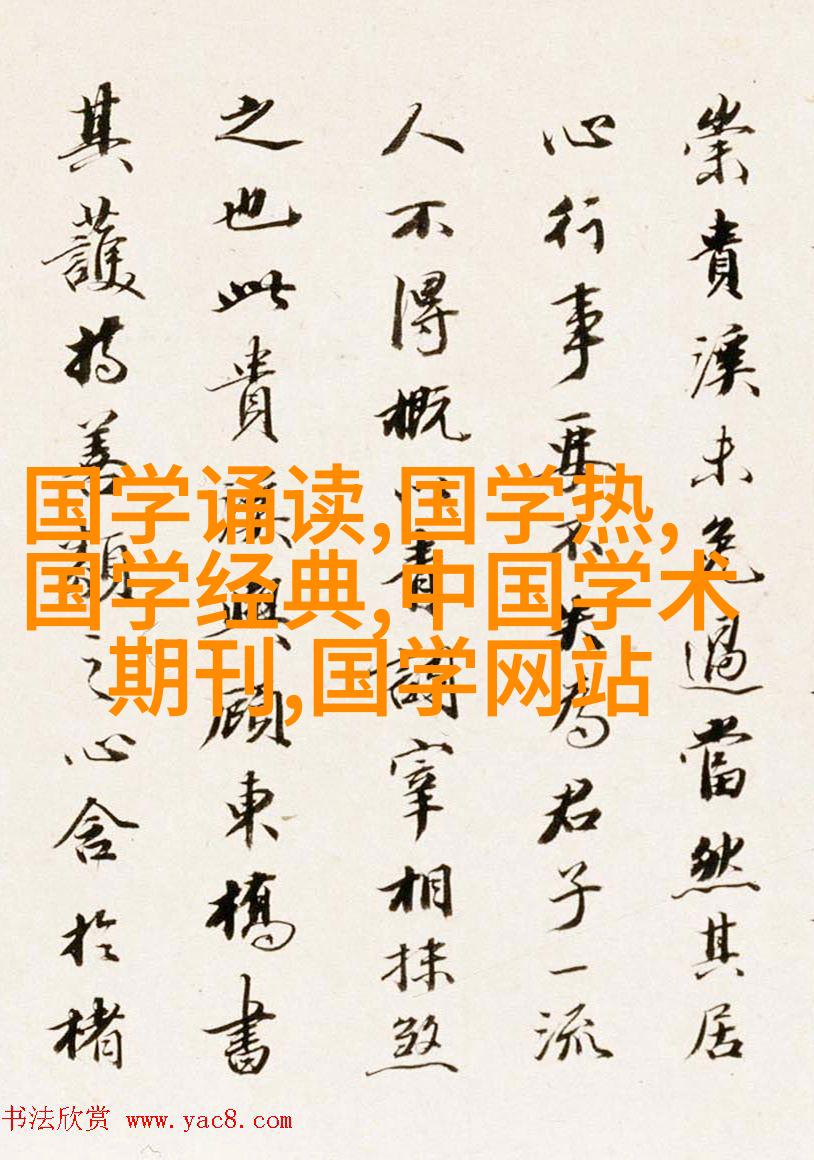 崇貴溪未免過當然其居
心行事要不失為君子一流
人不得概以青詞宰相抹煞
之也此貴溪與顧東橋書
其護持善類之心含於楮
国学诵读,国学热,
国学经典,中国学术
期刊,国学网站
书法欣赏 www.yac8.com